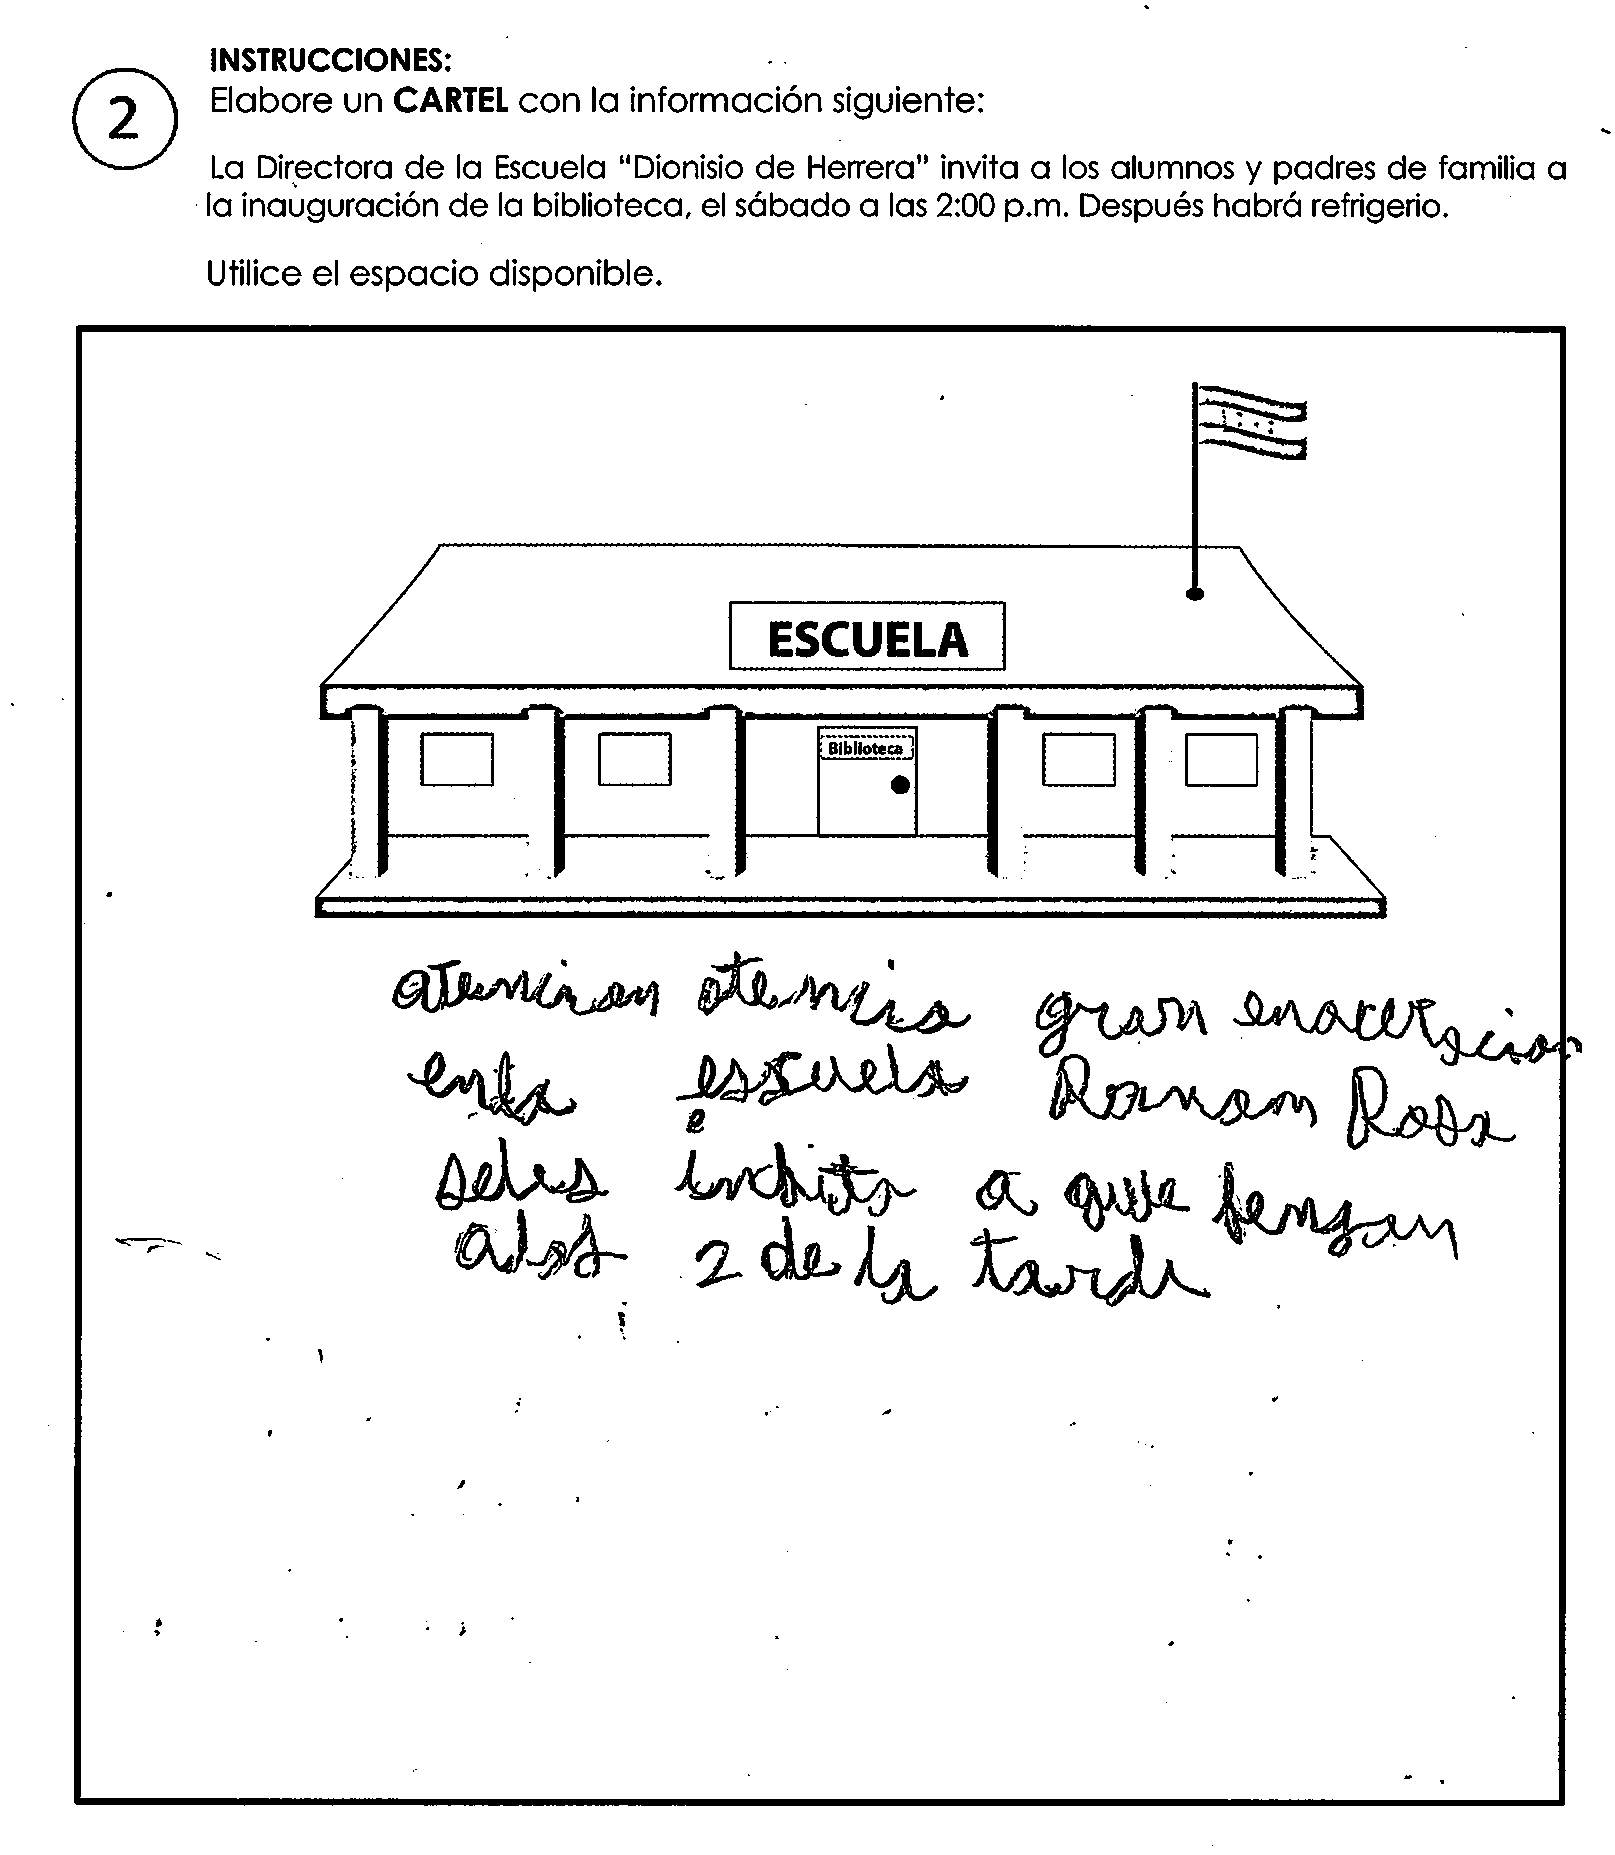 INSTRUCCIONES:
2
Elabore un CARTEL con la información siguiente:
La Directora de la Escuela "Dionisio de Herrera" invita a los alumnos y padres de familia a
la inauguración de la biblioteca, el sábado a las 2:00 p.m. Después habrá refrigerio.
Utilice el espacio disponible.
ESCUELA
Biblioteca
atencion atencio gran
enla escuela Ramom Rosa
seles inbita a que bengan
alas 2 de la tarde